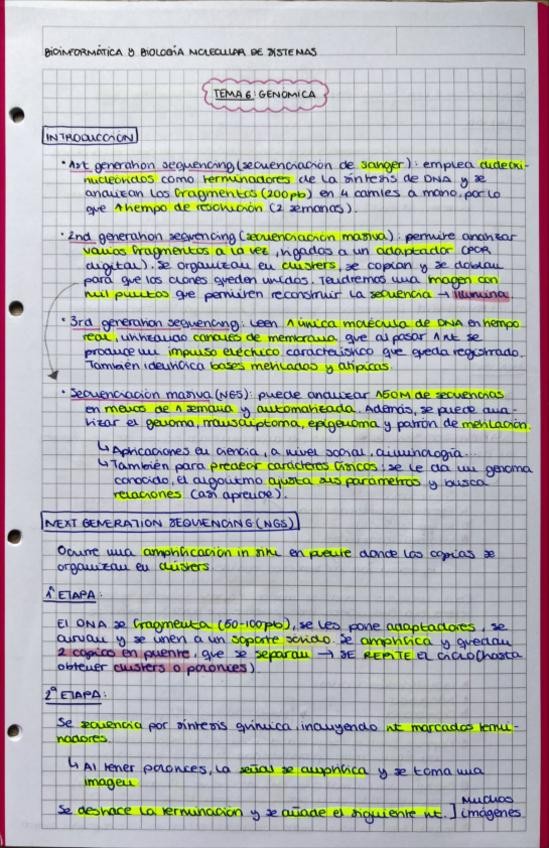 BIOINFORMÁTICA Y BIOLOGÍA MOLECULAR DE SISTEMAS
TEMA 6: GENÓMICA
INTRODUCCIÓN
• 1st generation sequencing (secuenciación de sanger): emplea didexi-
nucleótidos como terminadores de la síntesis de DNA y se
analizan los fragmentos (200pb) en 4 carriles a mano, por lo
que ↑ tiempo de resolución (2 semanas).
• 2nd generation sequencing (secuenciación masiva): permite analizar
varios fragmentos a la vez, ligados a un adaptador (PCR
digital). Se organizan en clusters, se copian y se doblan
para que los clones queden unidos. Tendremos una imagen con
mil puntos que permiten reconstruir la secuencia → Illumina
• 3rd generation sequencing: leen 1 única molécula de DNA en tiempo
real, utilizando canales de membrana que al pasar 1 nt se
produce un impulso eléctrico característico que queda registrado.
También identifica bases metiladas y atípicas.
• Secuenciación masiva (NGS): puede analizar 150M de secuencias
en menos de 1 semana y automatizada. Además, se puede ana-
lizar el genoma, transcriptoma, epigenoma y patrón de metilación.
↳ Aplicaciones en ciencia, a nivel social, criminología...
↳ También para predecir carácteres físicos: se le da un genoma
conocido, el algoritmo ajusta sus parámetros y busca
relaciones (así aprende).
NEXT GENERATION SEQUENCING (NGS)
Ocurre una amplificación in situ en puente donde las copias se
organizan en clusters.
1ª ETAPA:
El DNA se fragmenta (50-100pb), se les pone adaptadores, se
curvan y se unen a un soporte sólido. Se amplifica y quedan
2 copias en puente, que se separan → SE REPITE el ciclo (hasta
obtener clusters o polonies).
2ª ETAPA:
Se secuencia por síntesis química, incluyendo nt marcados termi-
nadores.
↳ Al tener polonies, la señal se amplifica y se toma una
imagen.
Se deshace la terminación y se añade el siguiente nt. ] Muchas
imágenes